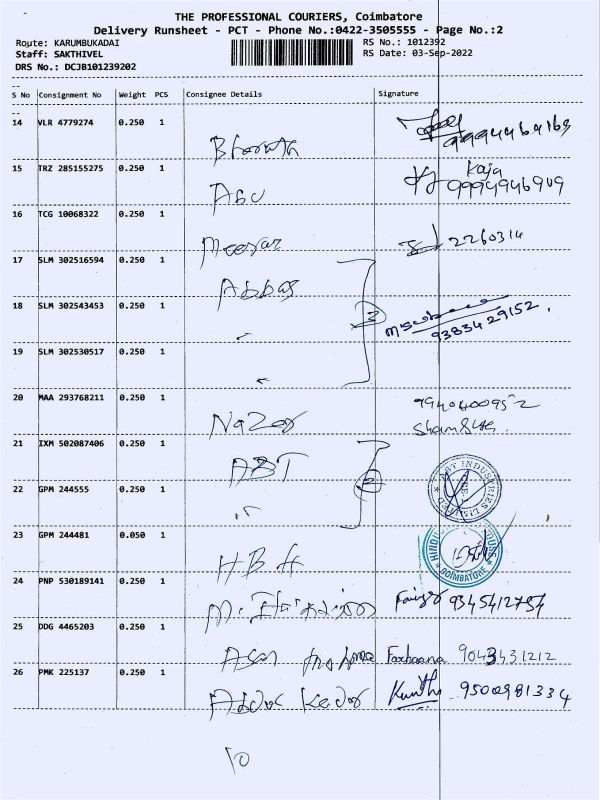 THE PROFESSIONAL COURIERS, Coimbatore
Delivery Runsheet - PCT - Phone No.:0422-3505555 - Page No.:2
Route: KARUMBUKADAI
RS No.: 1012392
Staff: SAKTHIVEL
RS Date: 03-Sep-2022
DRS No.: DCJB101239202
S No Consignment No Weight PCS Consignee Details Signature
14 VLR 4779274 0.250 1
15 TRZ 285155275 0.250 1 Abu Kaja 9994946909
16 TCG 10068322 0.250 1 2260314
17 SLM 302516594 0.250 1 Abbas
18 SLM 302543453 0.250 1 " 9383429152.
19 SLM 302530517 0.250 1 "
20 MAA 293768211 0.250 1
21 IXM 502087406 0.250 1 ABT ABT INDUSTRIES LIMITED
22 GPM 244555 0.250 1 "
23 GPM 244481 0.050 1 COIMBATORE
24 PNP 530189141 0.250 1 9345412754
25 DDG 4465203 0.250 1 Farhaana 9043431212
26 PMK 225137 0.250 1 9500981334
10